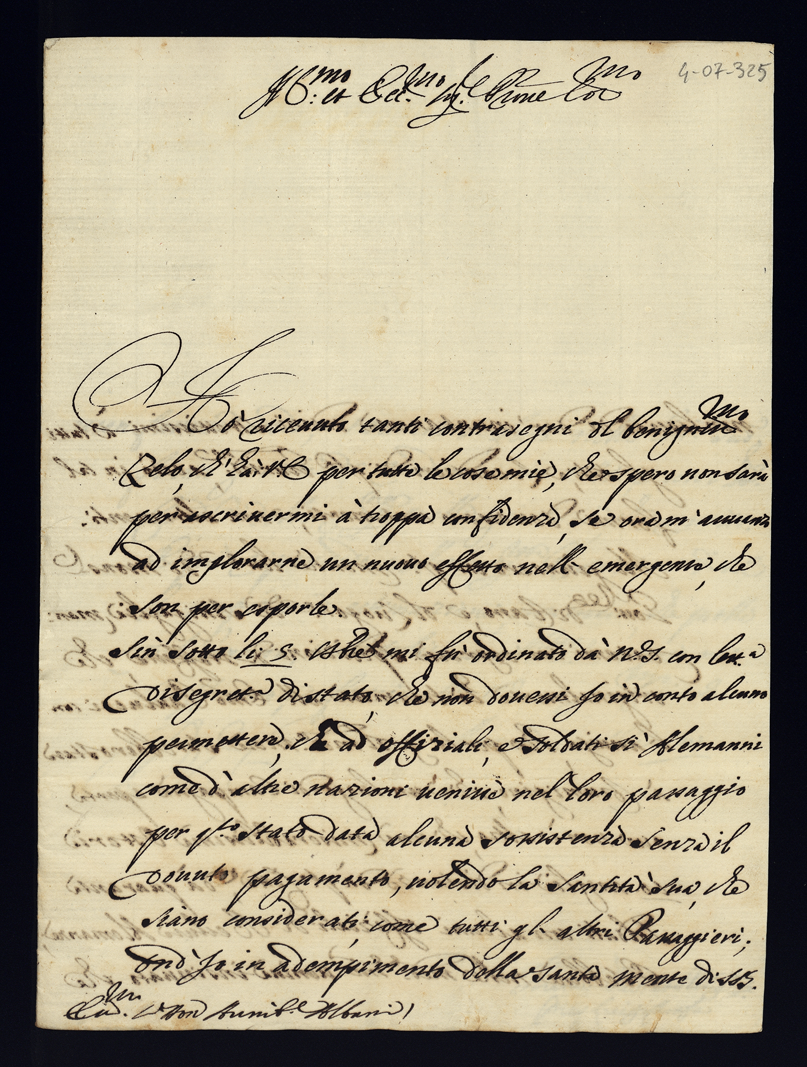 4-07-325
Ill:mo et Ecc:mo Sig.re Prone Col.mo
Hò riceuuto tanti contrasegni del benignis.mo
Zelo, che hà V.E. per tutte le cose mie, che spero non sarà
per ascriuermi à troppa confidenza, se ora m'auuanzo
ad implorarne un nuouo effetto nell' emergenza, che
son per esporle
Sin sotto li 5. mi fù ordinato dà N.S. con lett.a
di segret.a di stato, che non douessi io in conto alcuno
permettere, che ad offiziali, e soldati sì Alemanni
come d' altre nazioni uenisse nel loro passaggio
per q.to stato data alcuna sossistenza senza il
douuto pagamento, uolendo la Santità Sua, che
siano considerati come tutti gl' altri Passaggieri;
ond' io in adempimento della santa mente di S.B.
Don Annib.e Albani